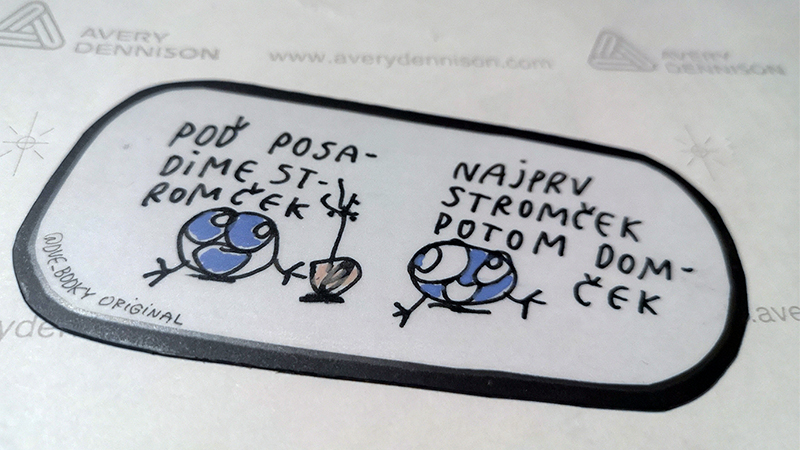 AVERY
DENNISON
www.averydennison.com
AVERY
DENNISON
POĎ POSA-
DiME ST-
ROMČEK
NAJPRV
STROMČEK
POTOM DOM-
ČEK
@DVE_BODKY ORIGINAL